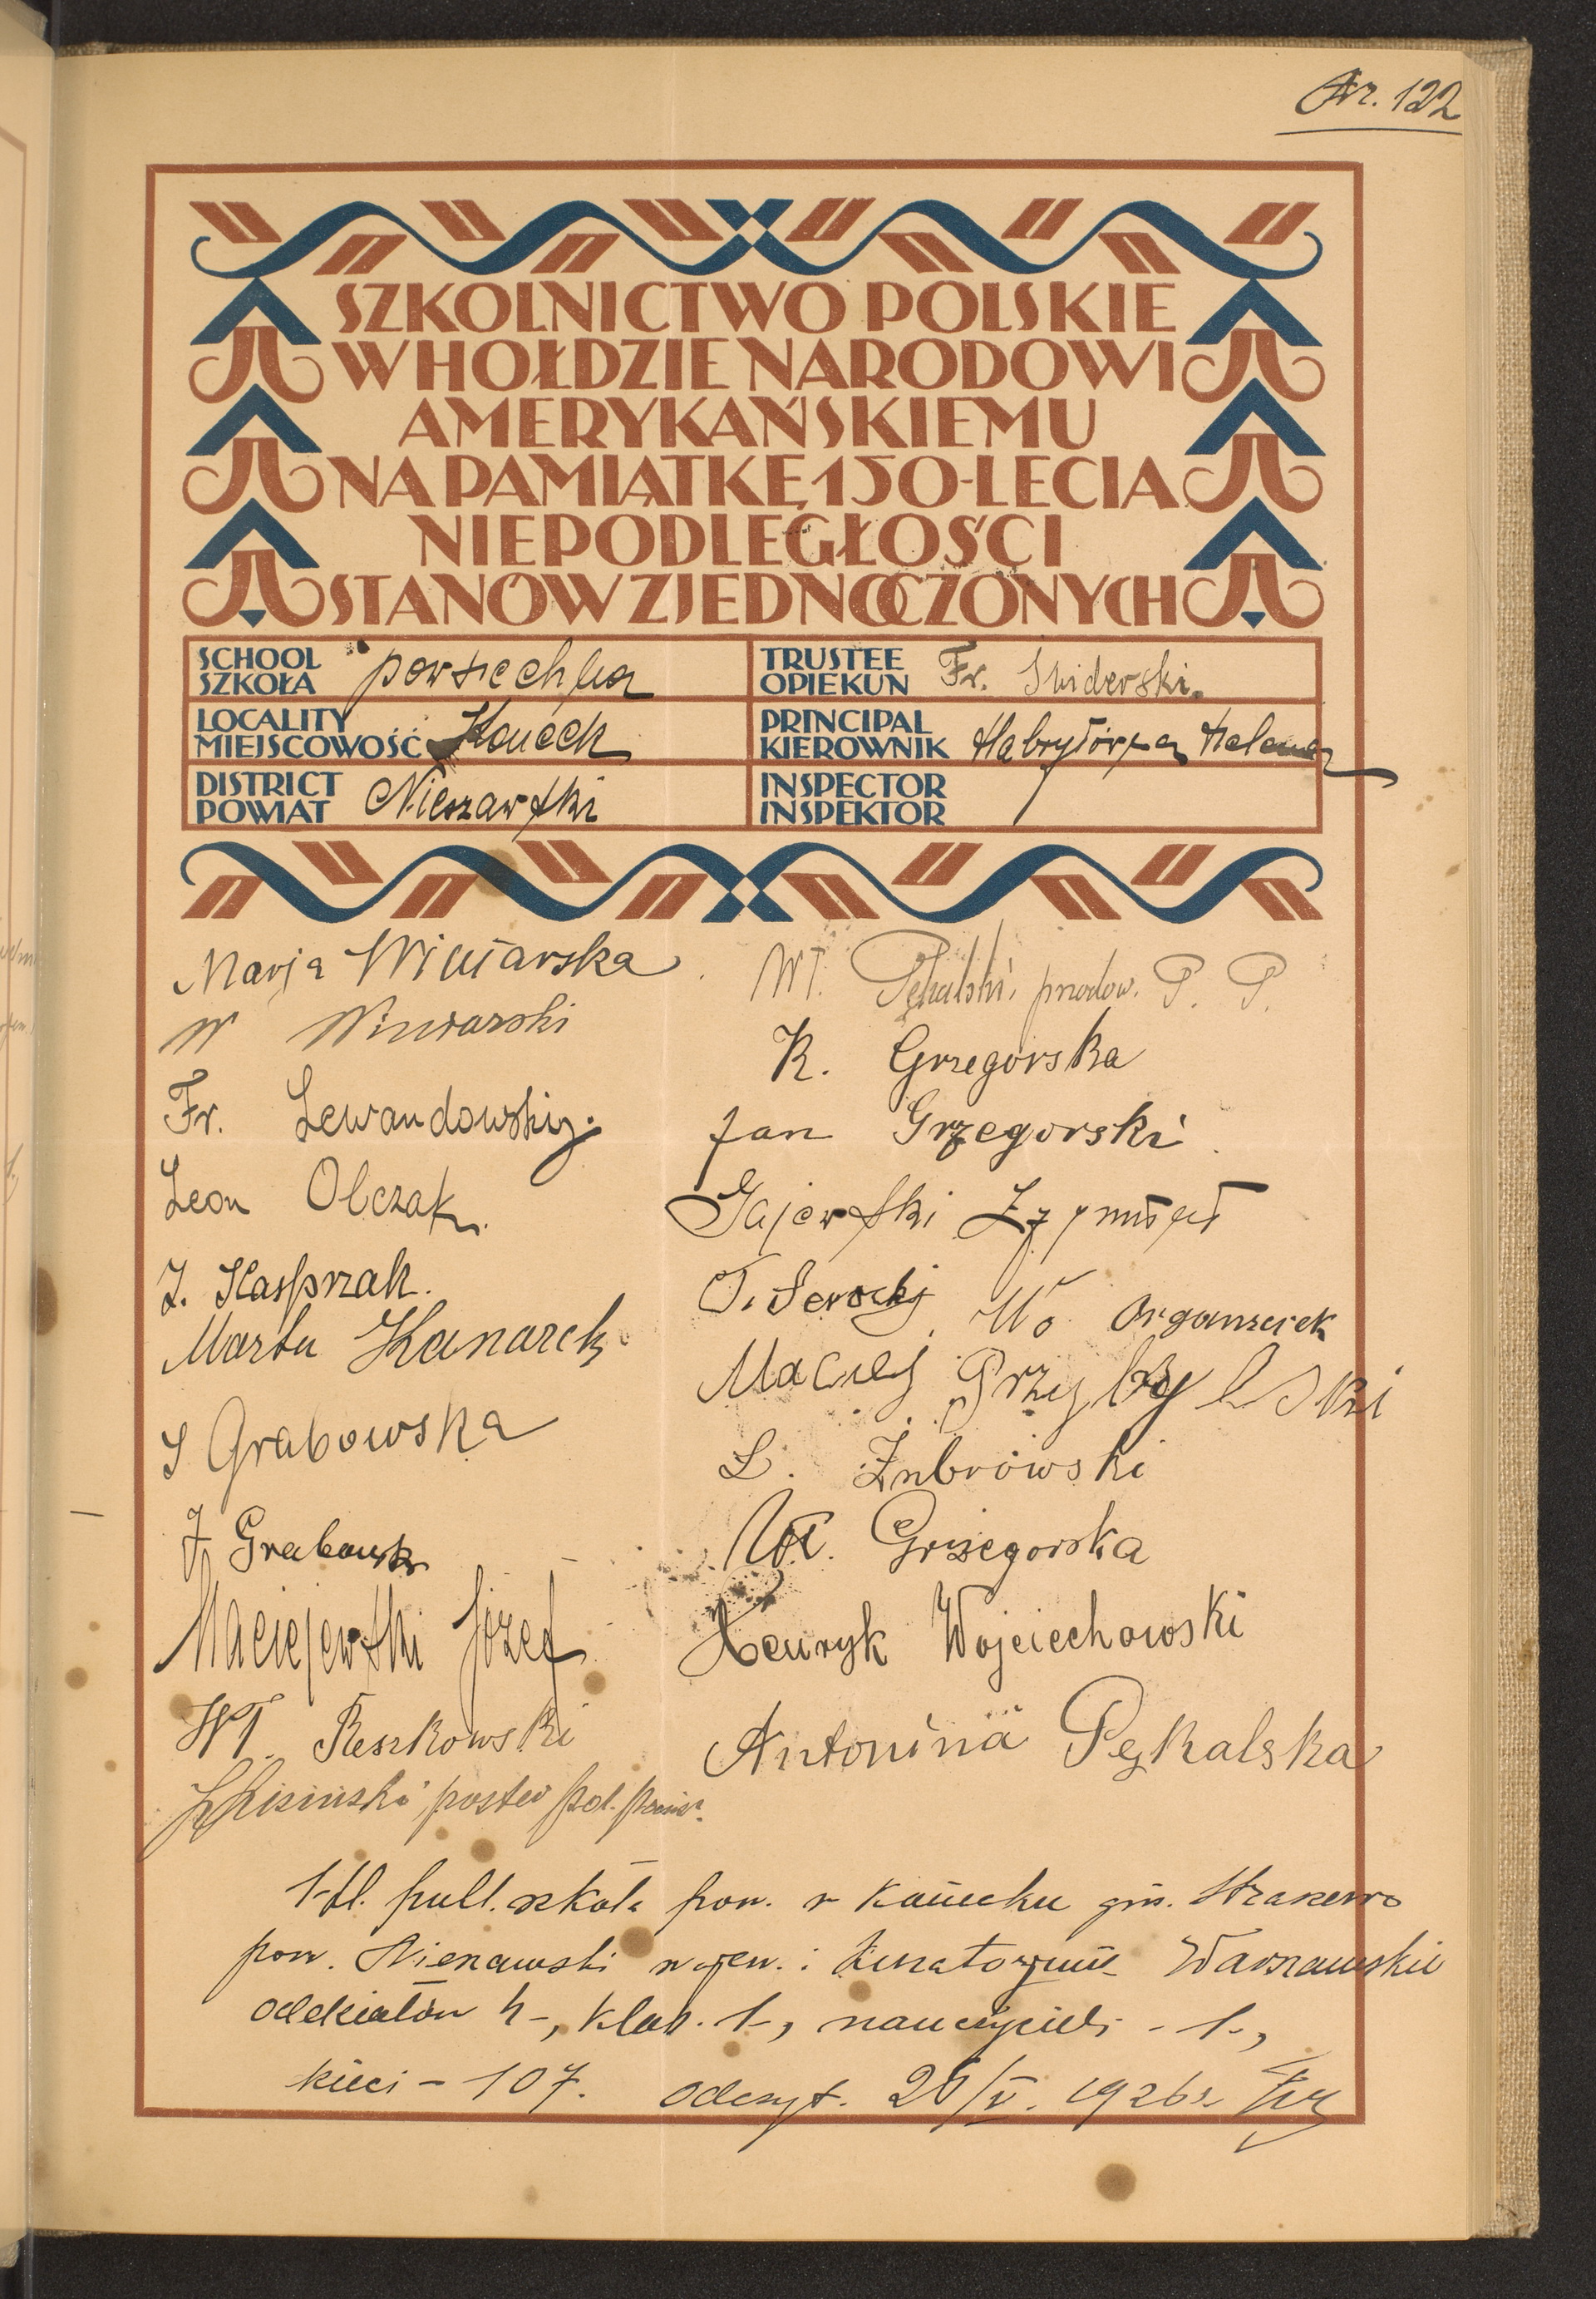 Nr. 122
SZKOLNICTWO POLSKIE
W HOŁDZIE NARODOWI
AMERYKAŃSKIEMU
NA PAMIĄTKĘ 150-LECIA
NIEPODLEGŁOŚCI
STANÓW ZJEDNOCZONYCH
SCHOOL
SZKOŁA
powszechna
TRUSTEE
OPIEKUN
Fr. Swiderski.
LOCALITY
MIEJSCOWOŚĆ
Koneck
PRINCIPAL
KIEROWNIK
Helena
DISTRICT
POWIAT
Nieszawski
INSPECTOR
INSPEKTOR
Marja Winiarska
W Winiarski
Fr. Lewandowski
Leon Olczak
J. Kasprzak.
Marta Kanarek
S Grabowska
J Grabowski
Maciejewski Józef
Wł. Reszkowski
Lisiński poster Pol.
Wł. Pękalski, przodow. P. P.
K. Grzegorska
Jan Grzegorski
Gajewski Zygmunt
T. Serocki
Maciej Przybylski
L. Żubrowski
Wł. Grzegorska
Henryk Wojciechowski
Antonina Pękalska
1-kl. publ. szkoła pow. w Konecku gm. Straszewo
pow. Nieszawski wojew. i kuratorjum Warszawskie
oddziałów 4-, klas. 1-, nauczycieli - 1-,
dzieci - 107. odczyt. 26/V. 1926 r.